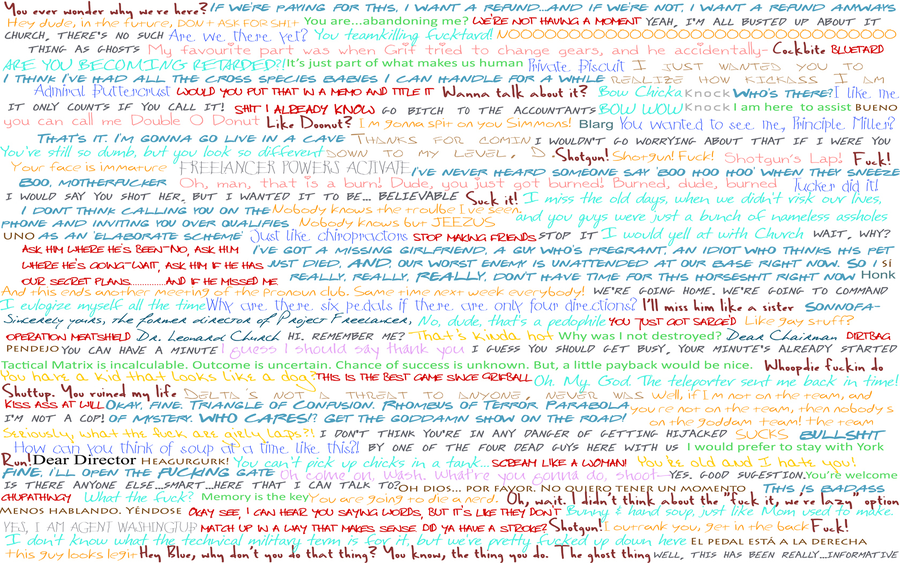 You ever wonder why we're here? IF WE'RE PAYING FOR THIS, I WANT A REFUND...AND IF WE'RE NOT, I WANT A REFUND ANWAYS
Hey dude, in the future, DON'T ASK FOR SHIT You are...abandoning me? WE'RE NOT HAVING A MOMENT YEAH, I'M ALL BUSTED UP ABOUT IT
CHURCH, THERE'S NO SUCH Are we there yet? You teamkilling fucktard! NOOOOOOOOOOOOOOOOOOOOOOOOOOOOOO
THING AS GHOSTS My favourite part was when Grif tried to change gears, and he accidentally- Cockbite BLUETARD
ARE YOU BECOMING RETARDED?! It's just part of what makes us human Private Biscuit I JUST WANTED YOU TO
I THINK I'VE HAD ALL THE CROSS SPECIES BABIES I CAN HANDLE FOR A WHILE REALIZE HOW KICKASS I AM
Admiral Buttercrust WOULD YOU PUT THAT IN A MEMO AND TITLE IT Wanna talk about it? Bow Chicka Knock WHO'S THERE? I like me
IT ONLY COUNTS IF YOU CALL IT! SHIT I ALREADY KNOW GO BITCH TO THE ACCOUNTANTS BOW WOW Knock I am here to assist BUENO
you can call me Double O Donut Like Doonut? I'm gonna spit on you Simmons! Blarg You wanted to see me, Principle Miller?
THAT'S IT. I'M GONNA GO LIVE IN A CAVE THANKS FOR COMIN I WOULDN'T GO WORRYING ABOUT THAT IF I WERE YOU
You've still so dumb, but you look so different DOWN TO MY LEVEL, D. Shotgun! Shotgun! Fuck! Shotgun's Lap! Fuck!
Your face is immature FREELANCER POWERS ACTIVATE I'VE NEVER HEARD SOMEONE SAY 'BOO HOO HOO' WHEN THEY SNEEZE
BOO, MOTHERFUCKER Oh, man, that is a burn! Dude, you just got burned! Burned, dude, burned Tucker did it!
I WOULD SAY YOU SHOT HER, BUT I WANTED IT TO BE... BELIEVABLE Suck it! I miss the old days, when we didn't risk our lives,
I DON'T THINK CALLING YOU ON THE Nobody knows the trouble I've seen and you guys were just a bunch of nameless assholes
PHONE AND INVITING YOU OVER QUALIFIES Nobody knows but JEEZUS
UNO AS AN ELABORATE SCHEME Just like chiropractors STOP MAKING FRIENDS STOP IT I would yell at with Church WAIT, WHY?
ASK HIM WHERE HE'S BEEN-NO, ASK HIM I'VE GOT A MISSING GIRLFRIEND, A GUY WHO'S PREGNANT, AN IDIOT WHO THINKS HIS PET
WHERE HE'S GOING-WAIT, ASK HIM IF HE HAS JUST DIED, AND, OUR WORST ENEMY IS UNATTENDED AT OUR BASE RIGHT NOW. SO I SI
OUR SECRET PLANS............AND IF HE MISSED ME REALLY, REALLY, REALLY, DON'T HAVE TIME FOR THIS HORSESHIT RIGHT NOW Honk
And this ends another meeting of the Pronoun club. Same time next week everybody! WE'RE GOING HOME. WE'RE GOING TO COMMAND
I eulogize myself all the time Why are there six pedals if there are only four directions? I'll miss him like a sister SONNOFA-
Sincerely yours, the former director of Project Freelancer, No, dude, that's a pedophile YOU JUST GOT SARGED Like gay stuff?
OPERATION MEATSHIELD Dr. Leonard Church HI. REMEMBER ME? That's kinda hot Why was I not destroyed? Dear Chairman DIRTBAG
PENDEJO YOU CAN HAVE A MINUTE I guess I should say thank you I GUESS YOU SHOULD GET BUSY, YOUR MINUTE'S ALREADY STARTED
Tactical Matrix is incalculable. Outcome is uncertain. Chance of success is unknown. But, a little payback would be nice. Whoopdie fuckin do
You have a kid that looks like a dog? THIS IS THE BEST GAME SINCE GRIFBALL Oh. My. God. The teleporter sent me back in time!
Shuttup. You ruined my life DELTA'S NOT A THREAT TO ANYONE, NEVER WAS Well, if I'm not on the team, and
KISS ASS AT WILL OKAY, FINE. TRIANGLE OF CONFUSION, RHOMBUS OF TERROR, PARABOLA you're not on the team, then nobody's
I'M NOT A COP! OF MYSTERY. WHO CARES!? GET THE GODDAMN SHOW ON THE ROAD! on the goddam team! the team
Seriously, what the fuck are girly laps?! I DON'T THINK YOU'RE IN ANY DANGER OF GETTING HIJACKED SUCKS BULLSHIT
How can you think of soup at a time like this?! BY ONE OF THE FOUR DEAD GUYS HERE WITH US I would prefer to stay with York
Run! Dear Director HEAGURGURK! You can't pick up chicks in a tank... SCREAM LIKE A WOMAN! You're old and I hate you!
FINE, I'LL OPEN THE FUCKING GATE Oh come on, Wash. What're you gonna do, shoot- YES. GOOD SUGESTION. You're welcome
IS THERE ANYONE ELSE...SMART...HERE THAT I CAN TALK TO? OH DIOS... POR FAVOR. NO QUIERO TENER UN MOMENTO THIS IS BADASS
CHUPATHINGY What the fuck? Memory is the key You are going to die a nerd. Oh, wait. I didn't think about the "fuck it, we're lazy" option
MENOS HABLANDO. YÉNDOSE OKAY SEE, I CAN HEAR YOU SAYING WORDS, BUT IT'S LIKE THEY DON'T Bunny & hand soup, just like Mom used to make.
YES, I AM AGENT WASHINGTUB MATCH UP IN A WAY THAT MAKES SENSE DID YA HAVE A STROKE? Shotgun! I outrank you, get in the back Fuck!
I don't know what the technical military term is for it, but we're pretty fucked up down here EL PEDAL ESTÁ A LA DERECHA
this guy looks legit Hey Blue, why don't you do that thing? You know, the thing you do. The ghost thing WELL, THIS HAS BEEN REALLY...INFORMATIVE